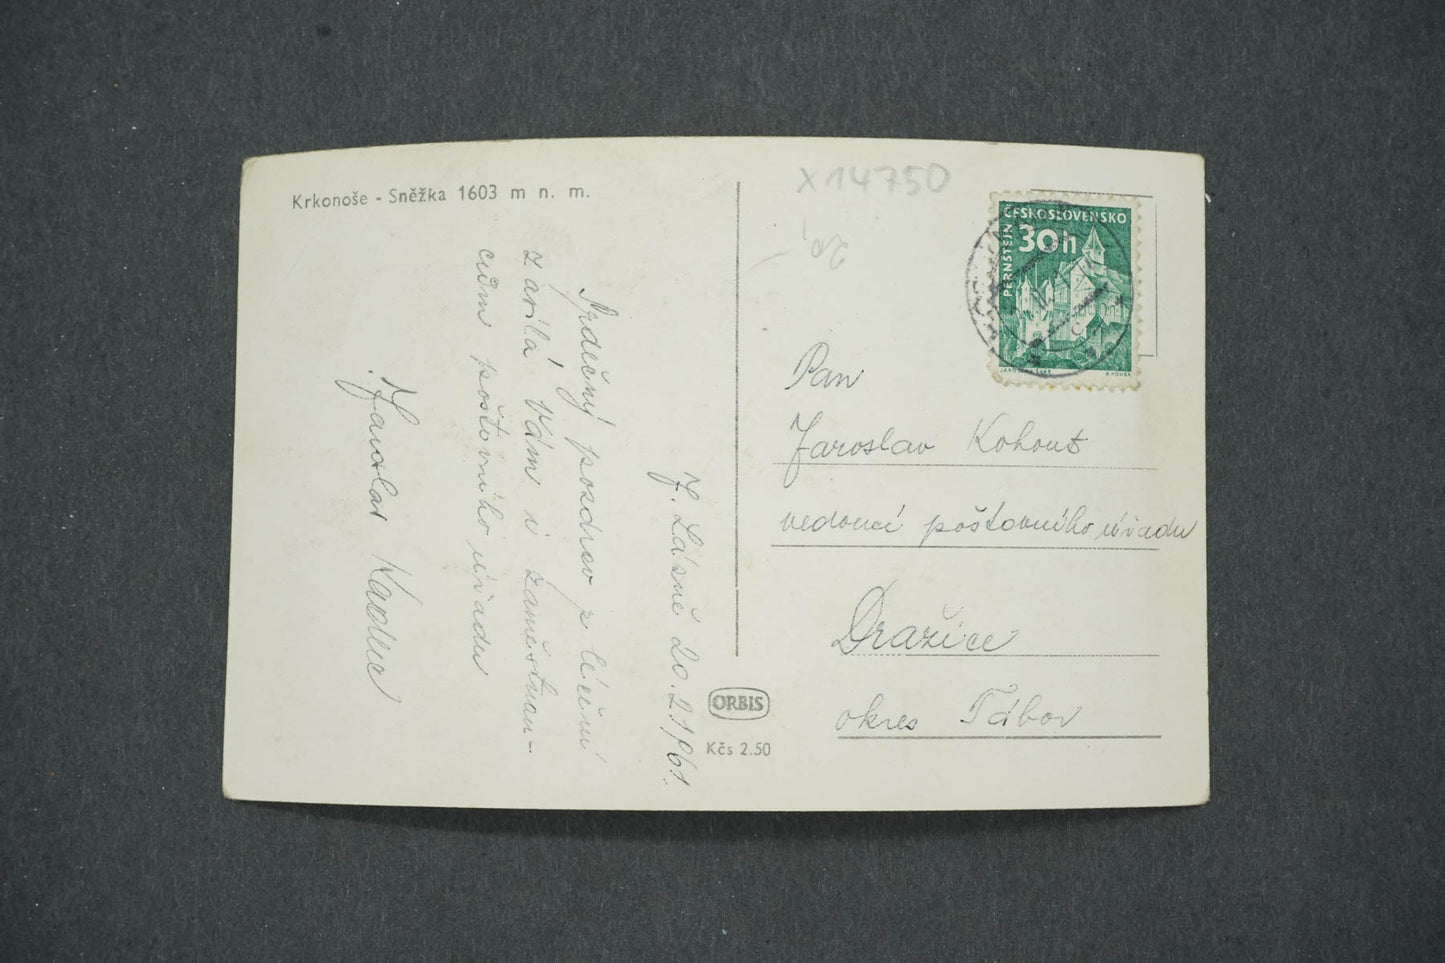 Krkonoše - Sněžka 1603 m n. m.
J. Lázně 20.2.1961.
Srdečný pozdrav z léčení
zasílá Vám i zaměstnan-
cům poštovního úřadu
Jaroslav Kadlec
ORBIS
Kčs 2.50
X14750
ČESKOSLOVENSKO
30h
PERNŠTEJN
Pan
Jaroslav Kohout
vedoucí poštovního úřadu
Dražice
okres Tábor